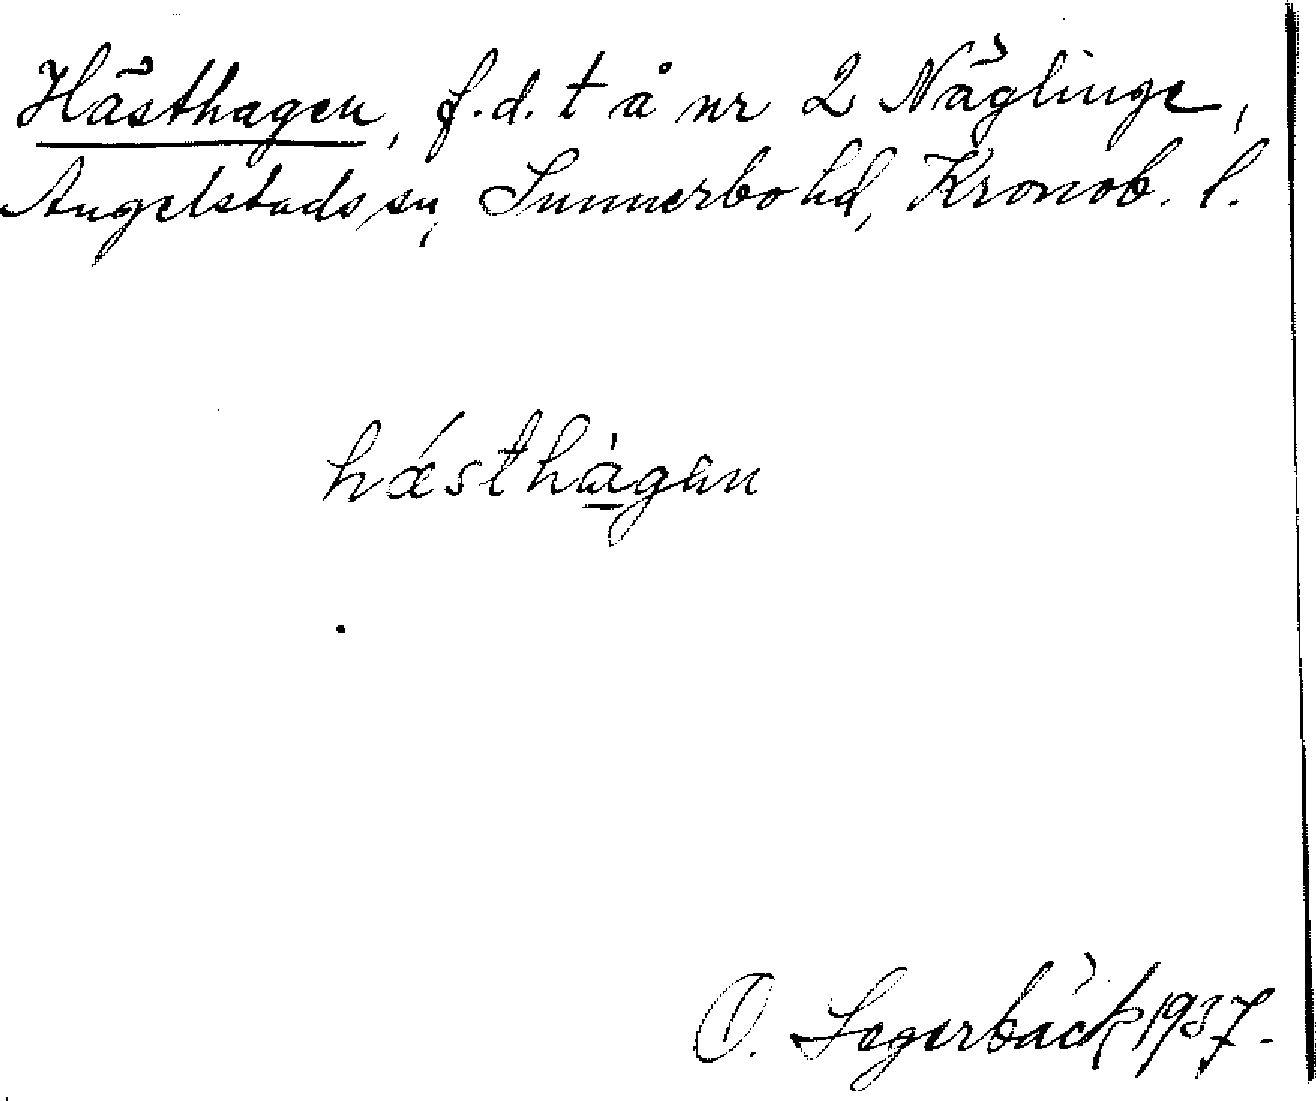 Hästhagen, f.d. t å nr 2 Näglinge,
Angelstads sn, Sunnerbo hd, Kronob. l.
hǽsthàgən
O. Segerbäck 1937.